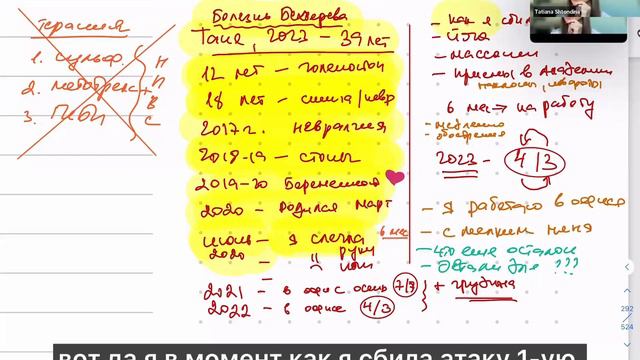 Терапия
1. сульф.
2. метотрексат
3. ГИБП
НПВС
Болезнь Бехтерева
Таня, 2023 - 39 лет
12 лет - голеностоп
18 лет - спина/невр
2017г. невралгия
2018-19 - стопы
2019-20 Беременность
2020 - родился март
июль 2020 - я слегла 6 мес
" руки
" ноги
2021 - в офис осень 7/3
2022 - в офисе 4/3
- как я сбил
- йога
- массажи
6 мес → на работу
- медленно
- обострения
2023 - 4/3
- я работаю в офисе
- с мелким няня
- что еще осталось
???
+ грудина
292
524
Tatiana Shtondina
вот да я в момент как я сбила атаку 1-ую